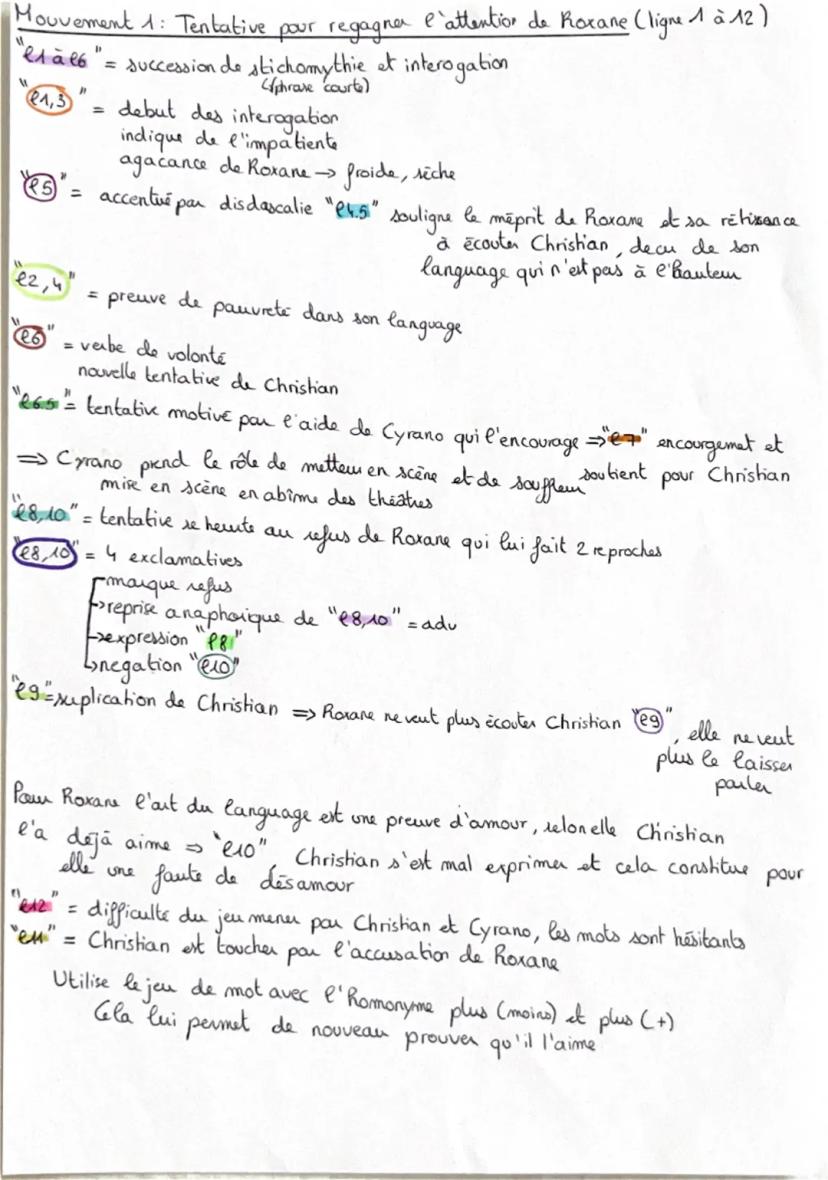 Mouvement 1: Tentative pour regagner l'attention de Roxane (ligne 1 à 12)
"l1 à l6" = succession de stichomythie et interogation
(↳phrase courte)
"l1,3" = debut des interogation
indique de l'impatiente
agacance de Roxane → froide, sèche
"l5" = accentué par disdascalie "l4.5" souligne le méprit de Roxane et sa rétissance
à écouter Christian, decu de son
language qui n'est pas à l'hauteur
"l2,4" = preuve de pauvreté dans son language
"l6" = verbe de volonté
nouvelle tentative de Christian
"l6.5" = tentative motivé par l'aide de Cyrano qui l'encourage ⇒ "l7" encourgemet et
soutient pour Christian
⇒ Cyrano prend le rôle de metteur en scène et de souffleur
mise en scène en abîme des théâtres
"l8,10" = tentative se heurte au refus de Roxane qui lui fait 2 reproches
"l8,10" = 4 exclamatives
marque refus
→reprise anaphorique de "l8,10" = adv
→expression "l8"
↳negation "l10"
"l9"=suplication de Christian ⇒ Roxane ne veut plus écouter Christian "l9", elle ne veut
plus le laisser
parler
Pour Roxane l'art du language est une preuve d'amour, selon elle Christian
l'a déjà aime ⇒ "l10", Christian s'est mal exprimer et cela constitue pour
elle une faute de désamour
"l12" = difficulté du jeu mener par Christian et Cyrano, les mots sont hésitants
"l11" = Christian est toucher par l'accusation de Roxane
Utilise le jeu de mot avec l'homonyme plus (moins) et plus (+)
Cela lui permet de nouveau prouver qu'il l'aime